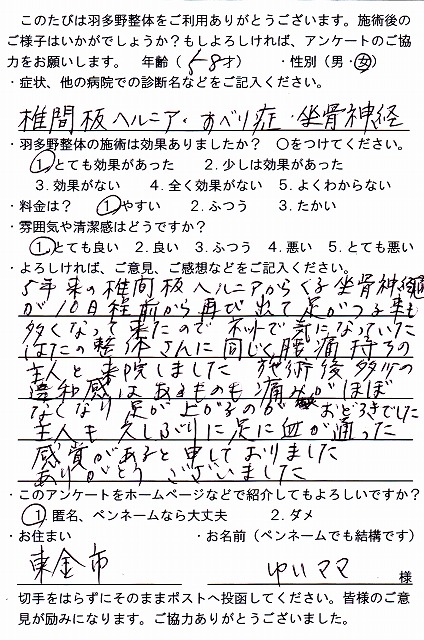 このたびは羽多野整体をご利用ありがとうございます。施術後の
ご様子はいかがでしょうか？もしよろしければ、アンケートのご協
力をお願いします。　年齢（ 58才）　・性別（男・女）
・症状、他の病院での診断名などをご記入ください。
椎間板ヘルニア・すべり症・坐骨神経
・羽多野整体の施術は効果ありましたか？　〇をつけてください。
1.とても効果があった　2.少しは効果があった
3.効果がない　4.全く効果がない　5.よくわからない
・料金は？　1.やすい　2.ふつう　3.たかい
・雰囲気や清潔感はどうですか？
1.とても良い　2.良い　3.ふつう　4.悪い　5.とても悪い
・よろしければ、ご意見、ご感想などをご記入ください。
5年来の椎間板ヘルニアからくる坐骨神経痛
が10日程前から再び出て足がつる事も
多くなって来たので ネットで気になっていた
はたの整体さんに同じく腰痛持ちの
主人と来院しました 施術後多少の
違和感はあるものも痛みがほぼ
なくなり 足が上がるのが おどろきでした
主人も久しぶりに足に血が通った
感覚があると申しておりました
ありがとうございました
・このアンケートをホームページなどで紹介してもよろしいですか？
1.匿名、ペンネームなら大丈夫　2.ダメ
・お住まい　・お名前（ペンネームでも結構です）
東金市　ゆいママ　様
切手をはらずにそのままポストへ投函してください。皆様のご意
見が励みになります。ご協力ありがとうございました。